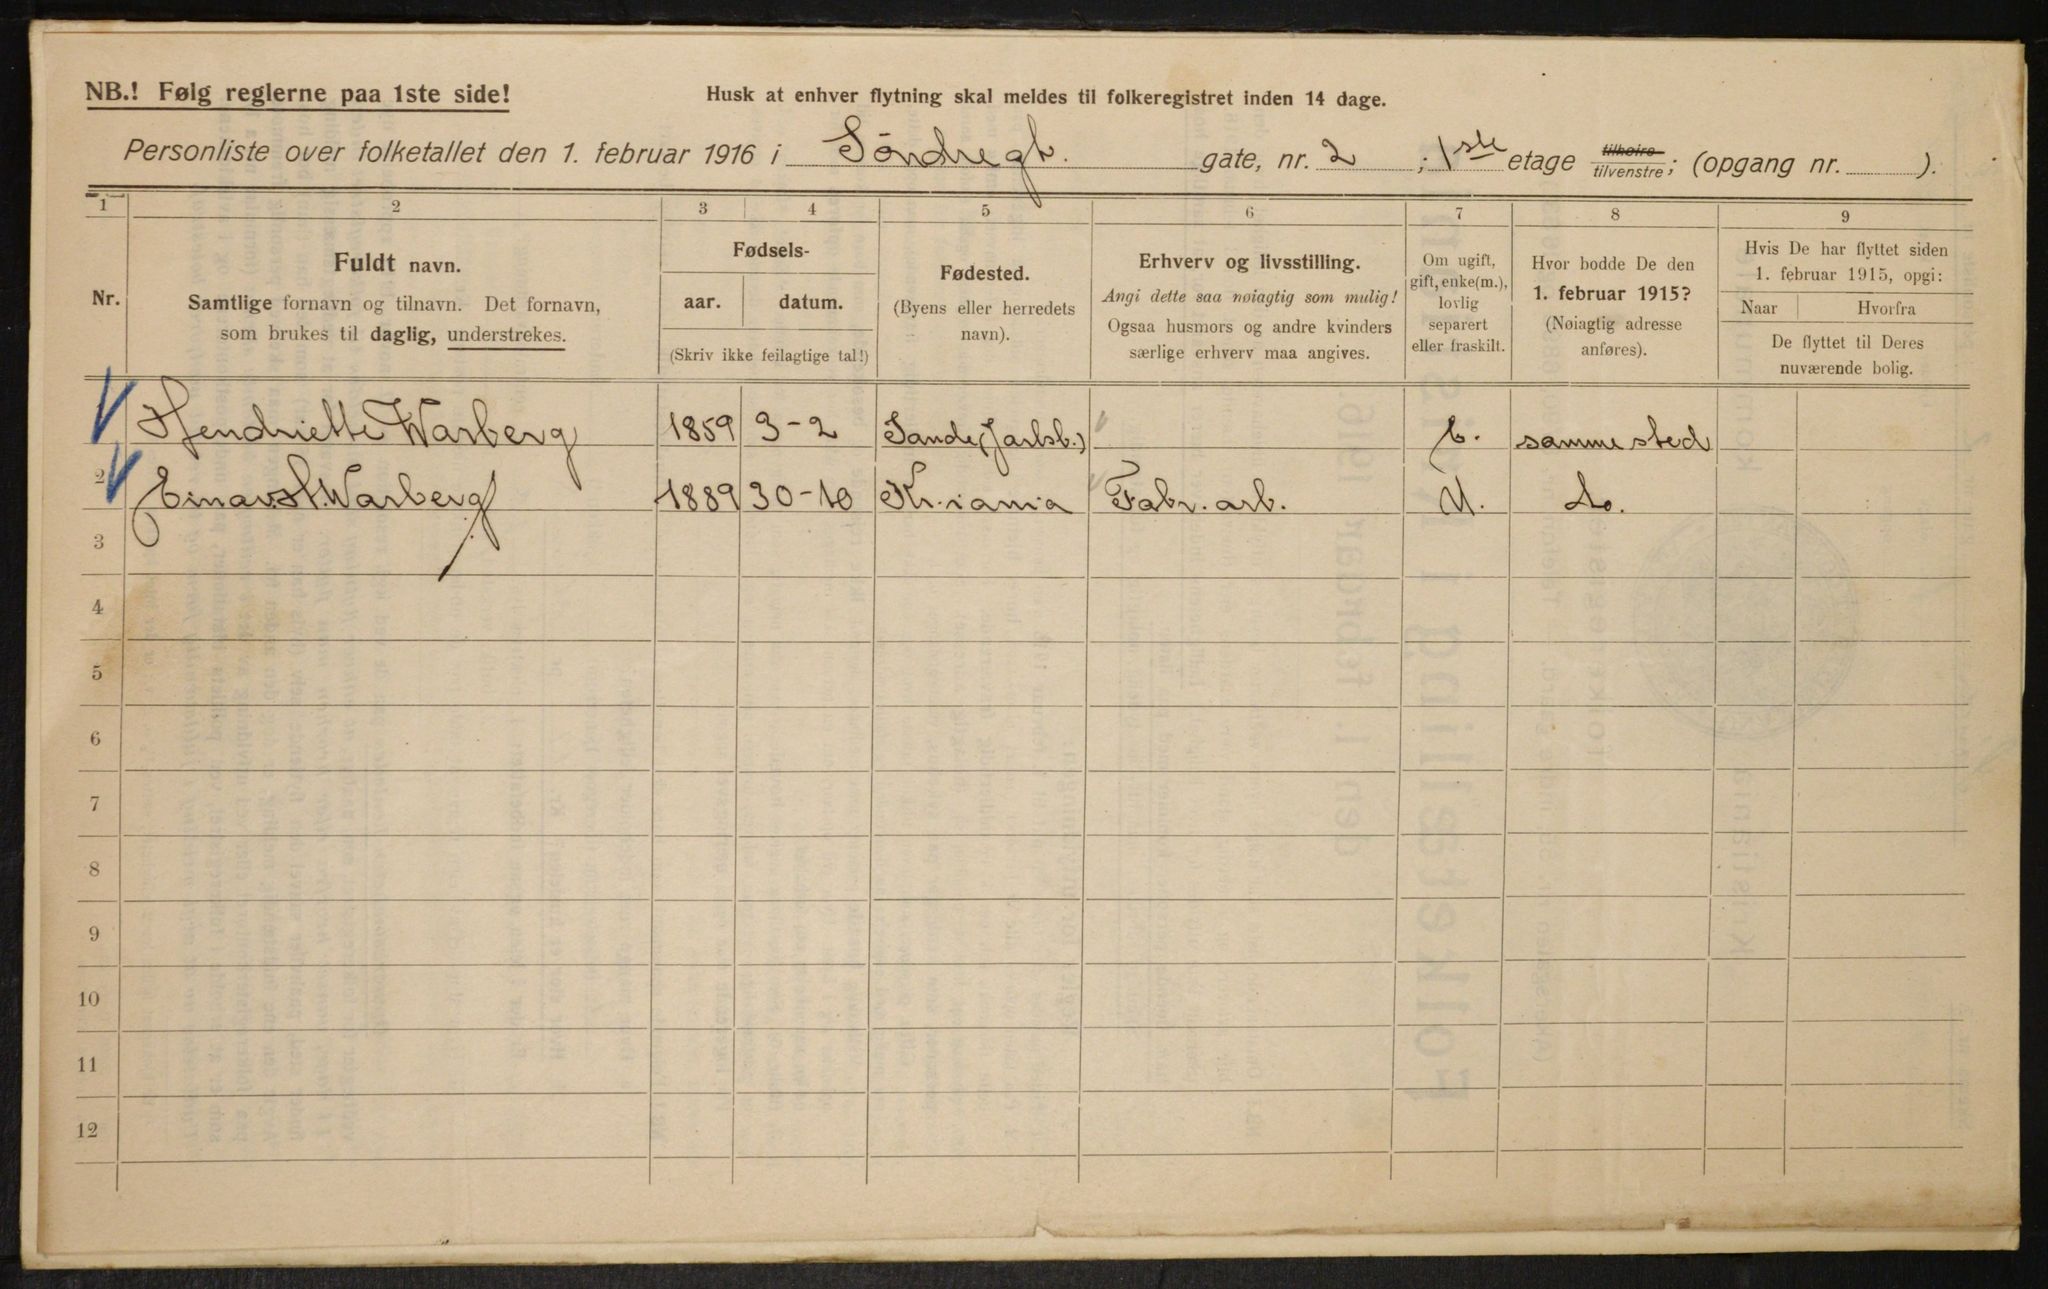 NB.! Følg reglerne paa 1ste side!
Husk at enhver flytning skal meldes til folkeregistret inden 14 dage.
Personliste over folketallet den 1. februar 1916 i Søndregt. gate, nr. 2 ; 1ste etage tilhøire/tilvenstre; (opgang nr. ).
1 2 3 4 5 6 7 8 9
Nr.
Fuldt navn.
Samtlige fornavn og tilnavn. Det fornavn,
som brukes til daglig, understrekes.
Fødsels-
aar. datum.
(Skriv ikke feilagtige tal!)
Fødested.
(Byens eller herredets
navn).
Erhverv og livsstilling.
Angi dette saa nøiagtig som mulig!
Ogsaa husmors og andre kvinders
særlige erhverv maa angives.
Om ugift,
gift, enke(m.),
lovlig
separert
eller fraskilt.
Hvor bodde De den
1. februar 1915?
(Nøiagtig adresse
anføres).
Hvis De har flyttet siden
1. februar 1915, opgi:
Naar Hvorfra
De flyttet til Deres
nuværende bolig.
Hendriette Warberg 1859 3-2 Sande (Jarlsb.) E. samme sted
2 Einar St. Warberg 1889 30-10 Kr.iania Fabr. arb. U. do.
3
4
5
6
7
8
9
10
11
12